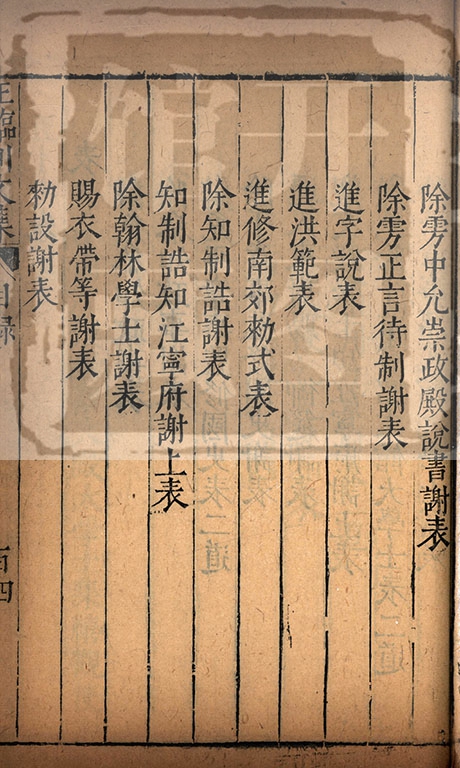 除雱中允崇政殿說書謝表
除雱正言待制謝表
進字說表
進洪範表
進修南郊勑式表
除知制誥謝表
知制誥知江寧府謝上表
除翰林學士謝表
賜衣帶等謝表
勑設謝表
王臨川文集 目錄 百四